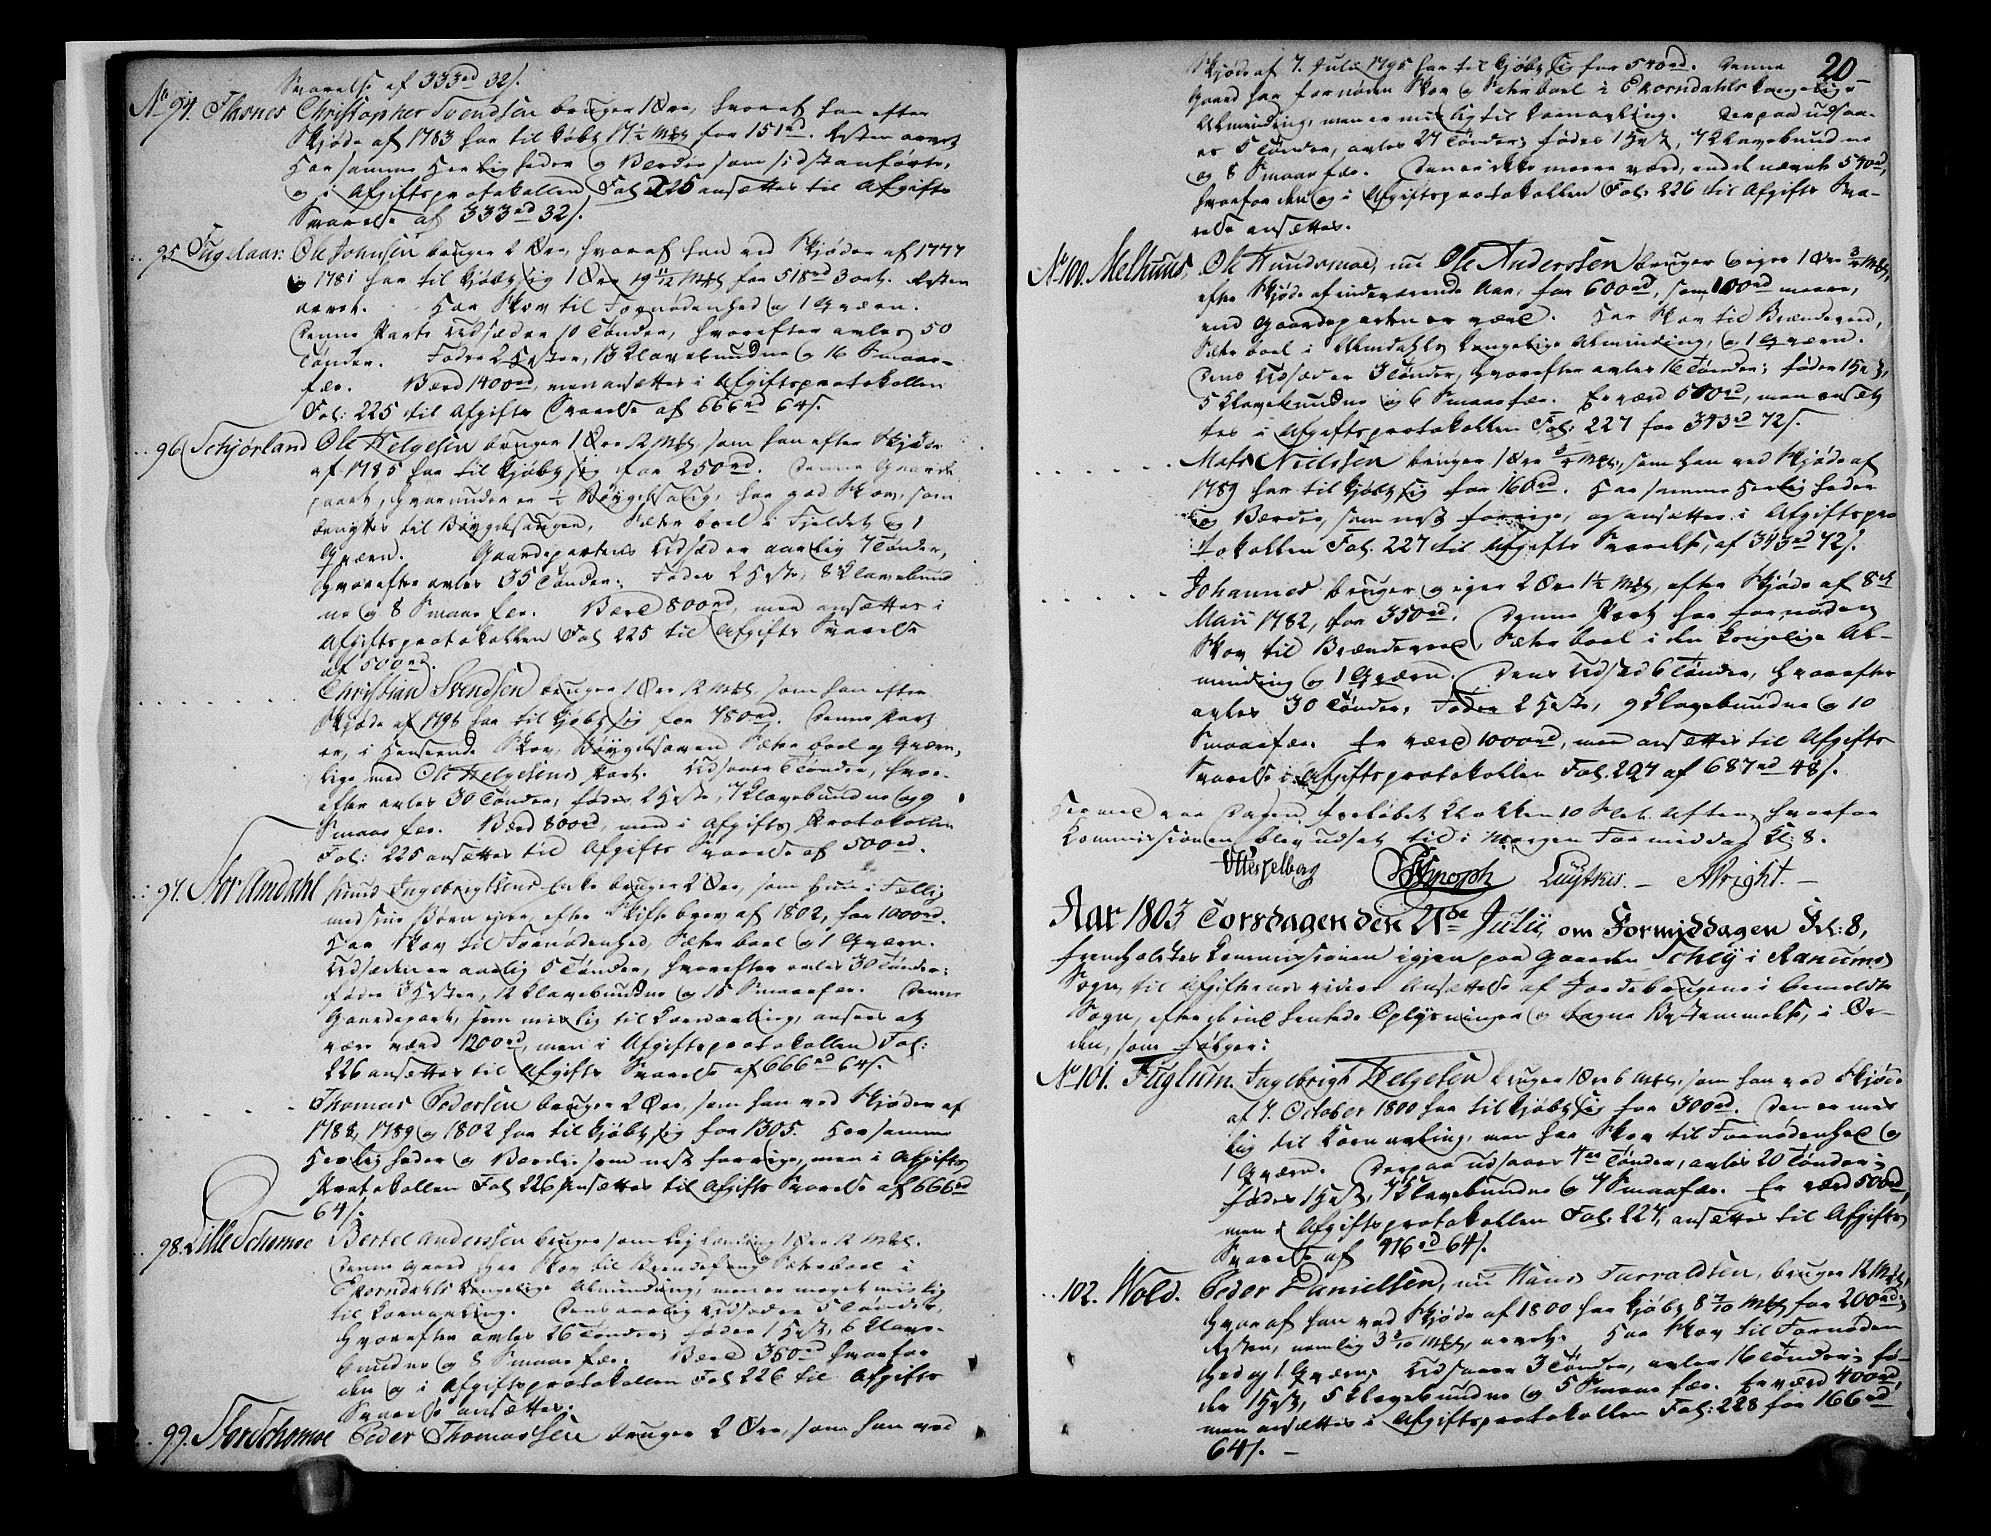 Svarelse af 333rd 32s.
No 94. Thosnes Christopher Svendsen bruger 1 Øre, hvoraf han efter
Skjøde af 1783 har til kjøbt 17½ Mkl for 151rd. Resten arvet
Har samme Herligheder og Værdie som sidstanførte,
og i Afgiftsprotokollen Fol. 225 ansættes til Afgifts
Svarelse af 333rd 32s.
95 Fuglaas: Ole Johnsen bruger 2 Øre, hvoraf han ved Skjøder af 1777
og 1781 har til kjøbt sig 1 Øre 19 11/12 Mkl for 518rd 3 ort. Resten
arvet. Har Skov til Fornødenhed og 1 Qværn.
Denne Parts Udsæd er 10 Tønder, hvorefter avles 50
Tønder. Føder 2 Hester, 13 Klavebundne og 16 Smaae-
fæ. Værd 1400rd, men ansættes i Afgiftsprotokollen
Fol: 225 til Afgifts Svarelse af 666rd 64s.
96 Schjørland Ole Helgesen bruger 1 Øre 12 Mkl, som han efter Skjøde
af 1785 har til kjøbt sig for 250rd. Denne Gaarde
part, hvorunder er ½ Bøygdesaug, har god Skov, som
benyttes til Bøygdesaugen, Sæter boel i Fjeldet og 1
Qværn. Gaardepartens Udsæd er aarlig 7 Tønder,
hvorefter avles 35 Tønder. Føder 2 Heste, 8 Klavebund
ne og 8 Smaae fæ. Værd 800rd, men ansættes i
Afgiftsprotokollen Fol 225 til Afgifts Svarelse
af 500rd.
Christian Svendsen bruger 1 Øre 12 Mkl som han efter
Skjøde af 1798 har til kjøbt sig for 780rd. Denne Part
er, i Henseende Skov, Bøygdesaven Sæter boel og Qværn,
lige med Ole Helgesens Part. Udsaaer 6 Tønder, hvor-
efter avles 30 Tønder; føder 2 Heste, 7 Klavebundne og 9
Smaae fæ. Værd 800rd, men i Afgifts Protokollen
Fol: 225 ansættes til Afgifts Svarelse af 500rd.
97. Stor Amdahl Knud Ingebrigtsens Enke bruger 2 Øre, som hun i Fællig
med sine Børn ejer, efter Skifte brev af 1802, for 1000rd.
Har Skov til Fornødenhed, Sæter boel og 1 Qværn.
Udsæden er aarlig 5 Tønder, hvorefter avles 30 Tønder;
føder 3 Hester, 12 Klavebundne og 15 Smaaefæ. Denne
Gaardepart, som mislig til Kornavling, ansees at
være værd 1200rd, men i Afgiftsprotokollen Fol:
226 ansættes til Afgifts Svarelse af 666rd 64s.
Thomas Pedersen bruger 2 Øre, som han ved Skjøder af
1788, 1789 og 1802 har til kjøbt sig for 1305. Har samme
Herligheder og Værdie som nest forrige, men i Afgifts
Protokollen Fol 226 ansættes til Afgifts Svarelse af 666rd
64s.
98. Lille Schomoe Bertel Anderssen bruger som Leylænding 1 Øre 12 Mkl.
Denne Gaard har Skov til Brændefang Sæterboel i
Ekorndahls kongelige Alminding, men er meget mislig
til Kornavling. Dens aarlig Udsæd er 5 Tønder,
hvorefter avles 26 Tønder; føder 1 Hest, 6 Klave-
bundne og 8 Smaae fæ. Værd 350rd hvorfor
den og i Afgiftsprotokollen Fol 226 til Afgifts
Svarelse ansættes.
99. Stor Schomoe Peder Thomassen bruger 2 Øre, som han ved
20
Skjøde af 7. Julii 1795 har til kjøbt sig for 540rd. Denne
Gaard har fornøden Skov og Sæterboel i Ekorndahls kongelige
Alminding, men er mislig til Kornavling. Derpaa udsaa-
es 5 Tønder, avles 27 Tønder; fødes 1 Hest, 7 Klavebundne
og 8 Smaae fæ. Den er ikke meere værd, end de nævnte 540rd,
hvorfor den og i Afgiftsprotokollen Fol: 226 til Afgifts Sva-
relse ansættes.
No 100. Melhuus, Ole Hundsmoe, nu Ole Anderssen bruger og ejer 1 Øre ¾ Mkl,
efter Skjøde af indeværende Aar, for 600rd, som 100rd meere,
end Gaardeparten er værd. Har Skov til Brændeved,
Sæter boel i Almdahls kongelige Almindning, og 1 Qværn.
Dens Udsæd er 3 Tønder, hvorefter avles 16 Tønder; føder 1 Hest,
5 Klavebundne og 6 Smaae fæ. Er værd 500rd, men ansæt
tes i Afgiftsprotokollen Fol: 227 for 343rd 72s.
Mats Nielssen bruger 1 Øre ¾ Mkl, som han ved Skjøde af
1789 har til kjøbt sig for 160rd. Har samme Herligheder
og Værdie, som nest forrige, og ansættes i Afgiftspro
tokollen Fol. 227 til Afgifts Svarelse, af 343rd 72s.
Johannes bruger og ejer 2 Øre 1½ Mkl, efter Skjøde af 8de
Maii 1782, for 350rd. Denne Part har fornøden
Skov til Brændeved, Sæter boel i den kongelige Al-
minding og 1 Qværn. Dens Udsæd 6 Tønder, hvorefter
avles 30 Tønder, Føder 2 Heste, 9 Klavebundne og 10
Smaaefæ. Er værd 1000rd, men ansættes til Afgifts
Svarelse i Afgiftsprotokollen Fol. 227 af 687rd 48s.
Hermed var Dagen forløbet Klokken 10 Slet Aften, hvorfor
Kommissionen blev udsat til i Morgen Formiddag Kl: 8.
Hesselberg Knoph Luytkis. — Alright. —
Aar 1803 Torsdagen den 21de Julii, om Formiddagen Kl: 8,
fremholdtes Kommissionen igjen paa Gaarden Schey i Ranums
Sogn, til Afgifternes videre Ansættelse af Jordebrugene i bemeldte
Sogn, efter de indhentede Oplysninger og tagne Bestemmelse, i Or-
den, som følger:
No 101. Fuglum. Ingebrigt Helgesen bruger 1 Øre 6 Mkl, som han ved Skjøde
af 7. October 1800 har til kjøbt sig for 300rd. Den er mis
lig til Kornavling, men har Skov til Fornødenhed og
1 Qværn. Derpaa udsaaes 4re Tønder, avles 20 Tønder;
fødes 1 Hest, 7 Klavebundne og 7 Smaaefæ. Er værd 500rd,
men i Afgiftsprotokollen Fol: 227, ansættes til Afgifts
Svarelse af 416rd 64s.
102. Wold. Peder Danielsen, nu Hans Tarraldsen, bruger 12 Mkl,
hvoraf han ved Skjøde af 1800 har kjøbt 8 7/10 Mkl for 200rd;
Resten, nemlig 3 3/10 Mkl, arvet. Har Skov til Fornøden
hed og 1 Qværn. Udsaaer 3 Tønder, avler 16 Tønder; fø-
der 1 Hest, 5 Klavebundne og 5 Smaae fæ. Er værd 400rd,
men ansættes i Afgiftsprotokollen Fol: 228 for 166rd
64s. —